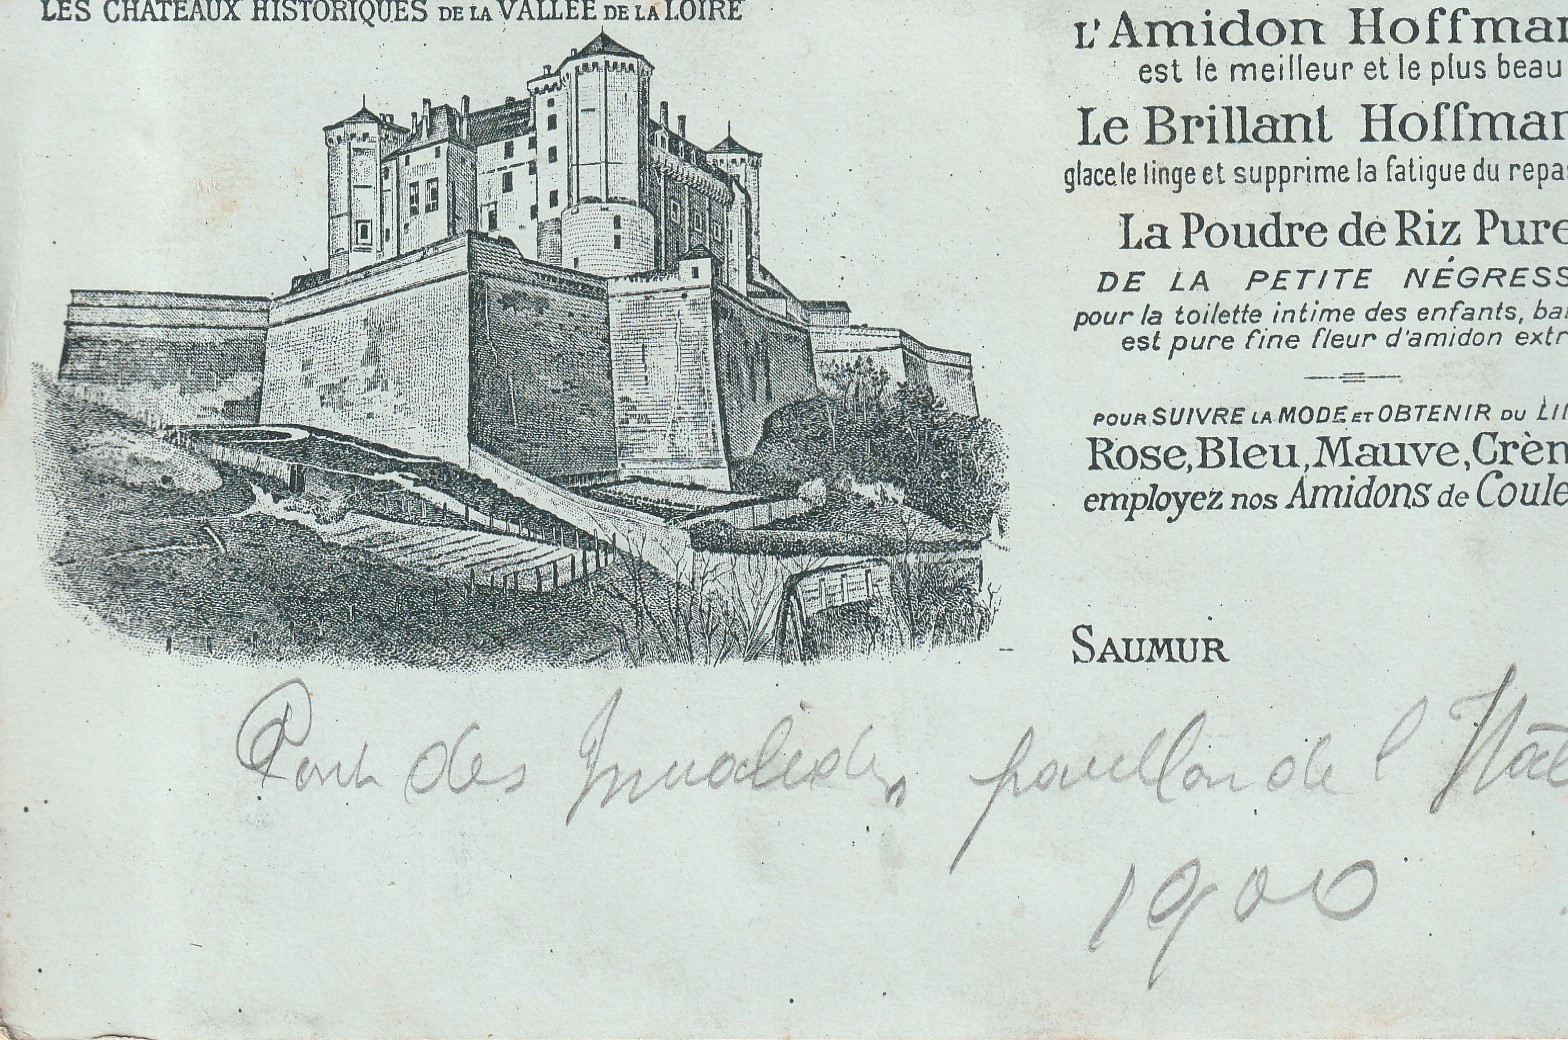 LES CHATEAUX HISTORIQUES DE LA VALLÉE DE LA LOIRE
L'Amidon Hoffman
est le meilleur et le plus beau
Le Brillant Hoffman
glace le linge et supprime la fatigue du repa
La Poudre de Riz Pure
DE LA PETITE NÉGRESS
pour la toilette intime des enfants, ba
est pure fine fleur d'amidon extr
POUR SUIVRE LA MODE ET OBTENIR DU LI
Rose, Bleu, Mauve, Crèm
employez nos Amidons de Coule
SAUMUR
Pont des Invalides, pavillon de l'Ital
1900